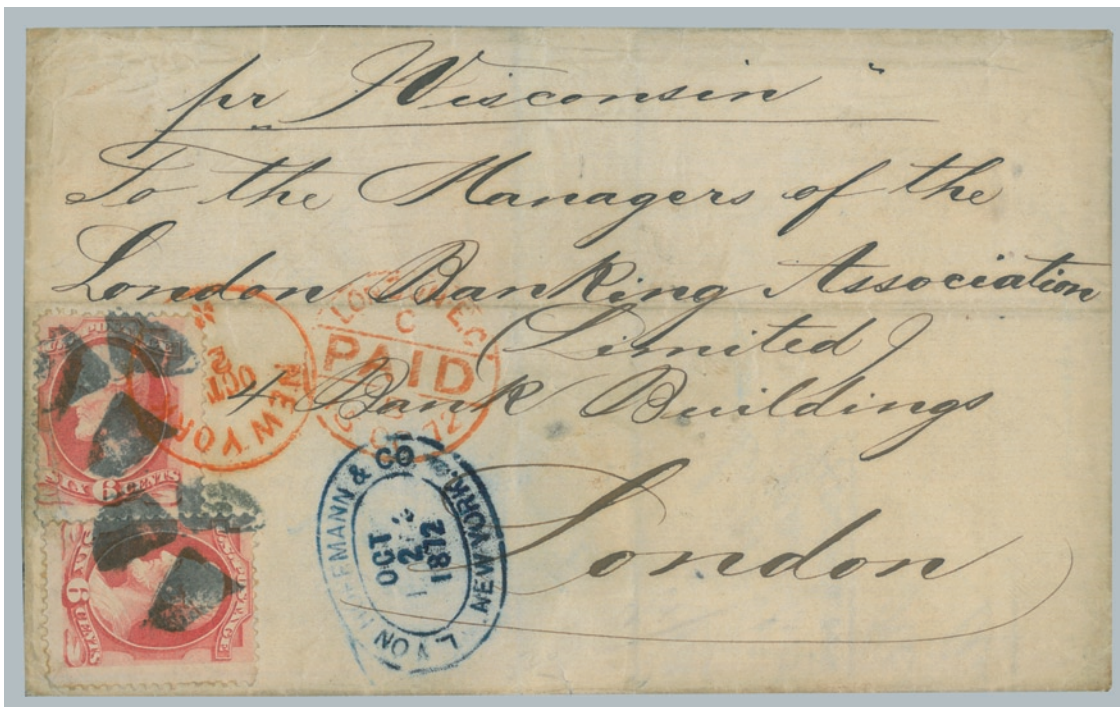 pr "Wisconsin"
To the Managers of the
London Banking Association
(Limited)
4 Bank Buildings
London
NEW YORK
OCT
2
LONDON E.C
C
PAID
OC 72
L. VON & CO
NEW YORK.
OCT
2
1872
U.S. POSTAGE
SIX 6 CENTS
U.S. POSTAGE
SIX 6 CENTS